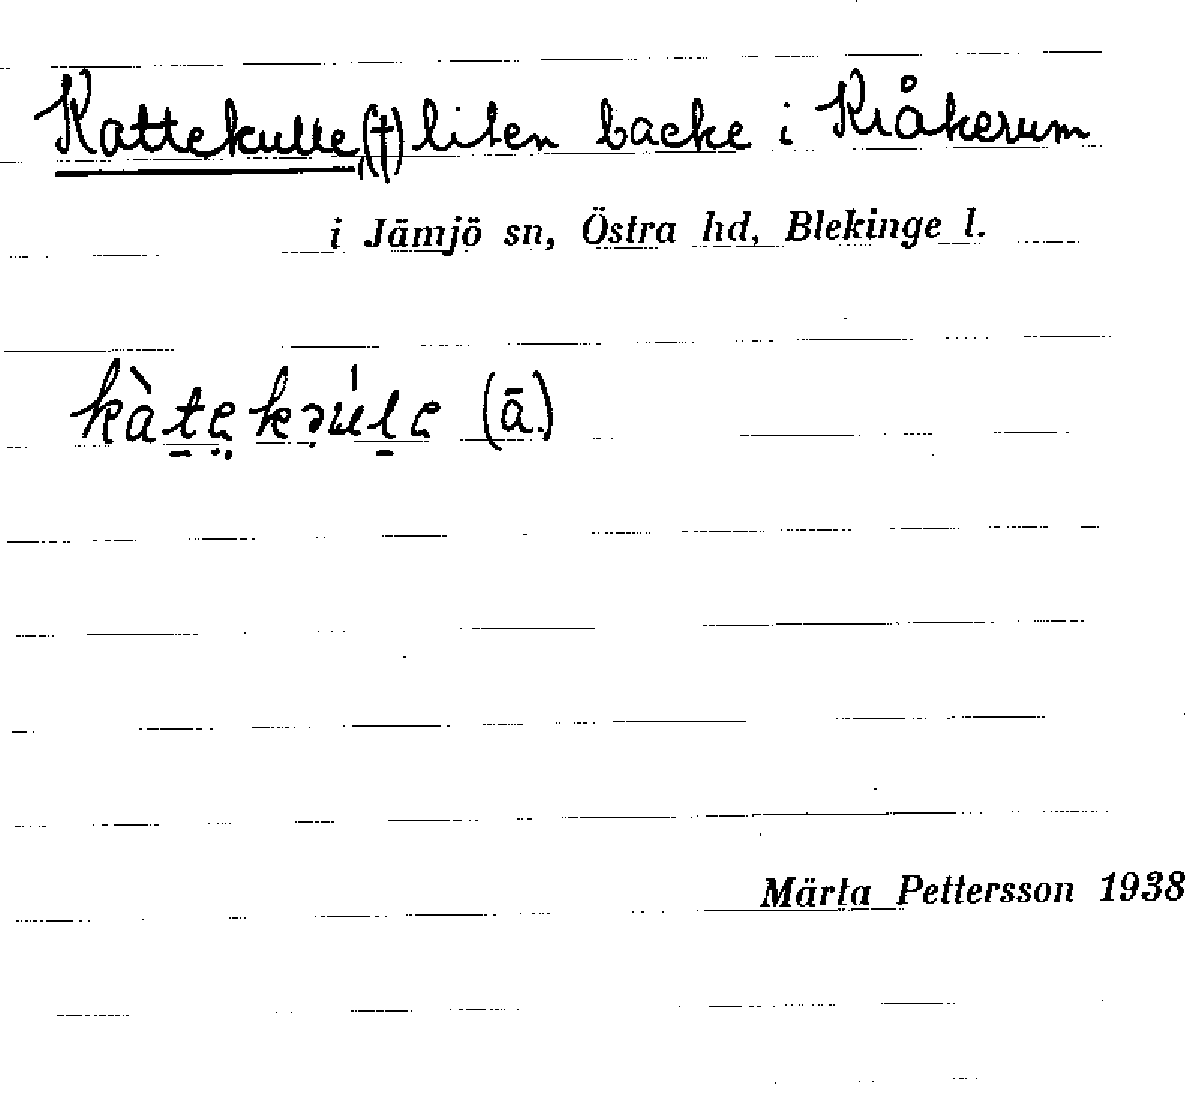 Kattekulle, (†) liten backe i Kråkerum
i Jämjö sn, Östra hd, Blekinge l.
kàt̠e̤ kə̣úl̠e (ā.)
Märta Pettersson 1938